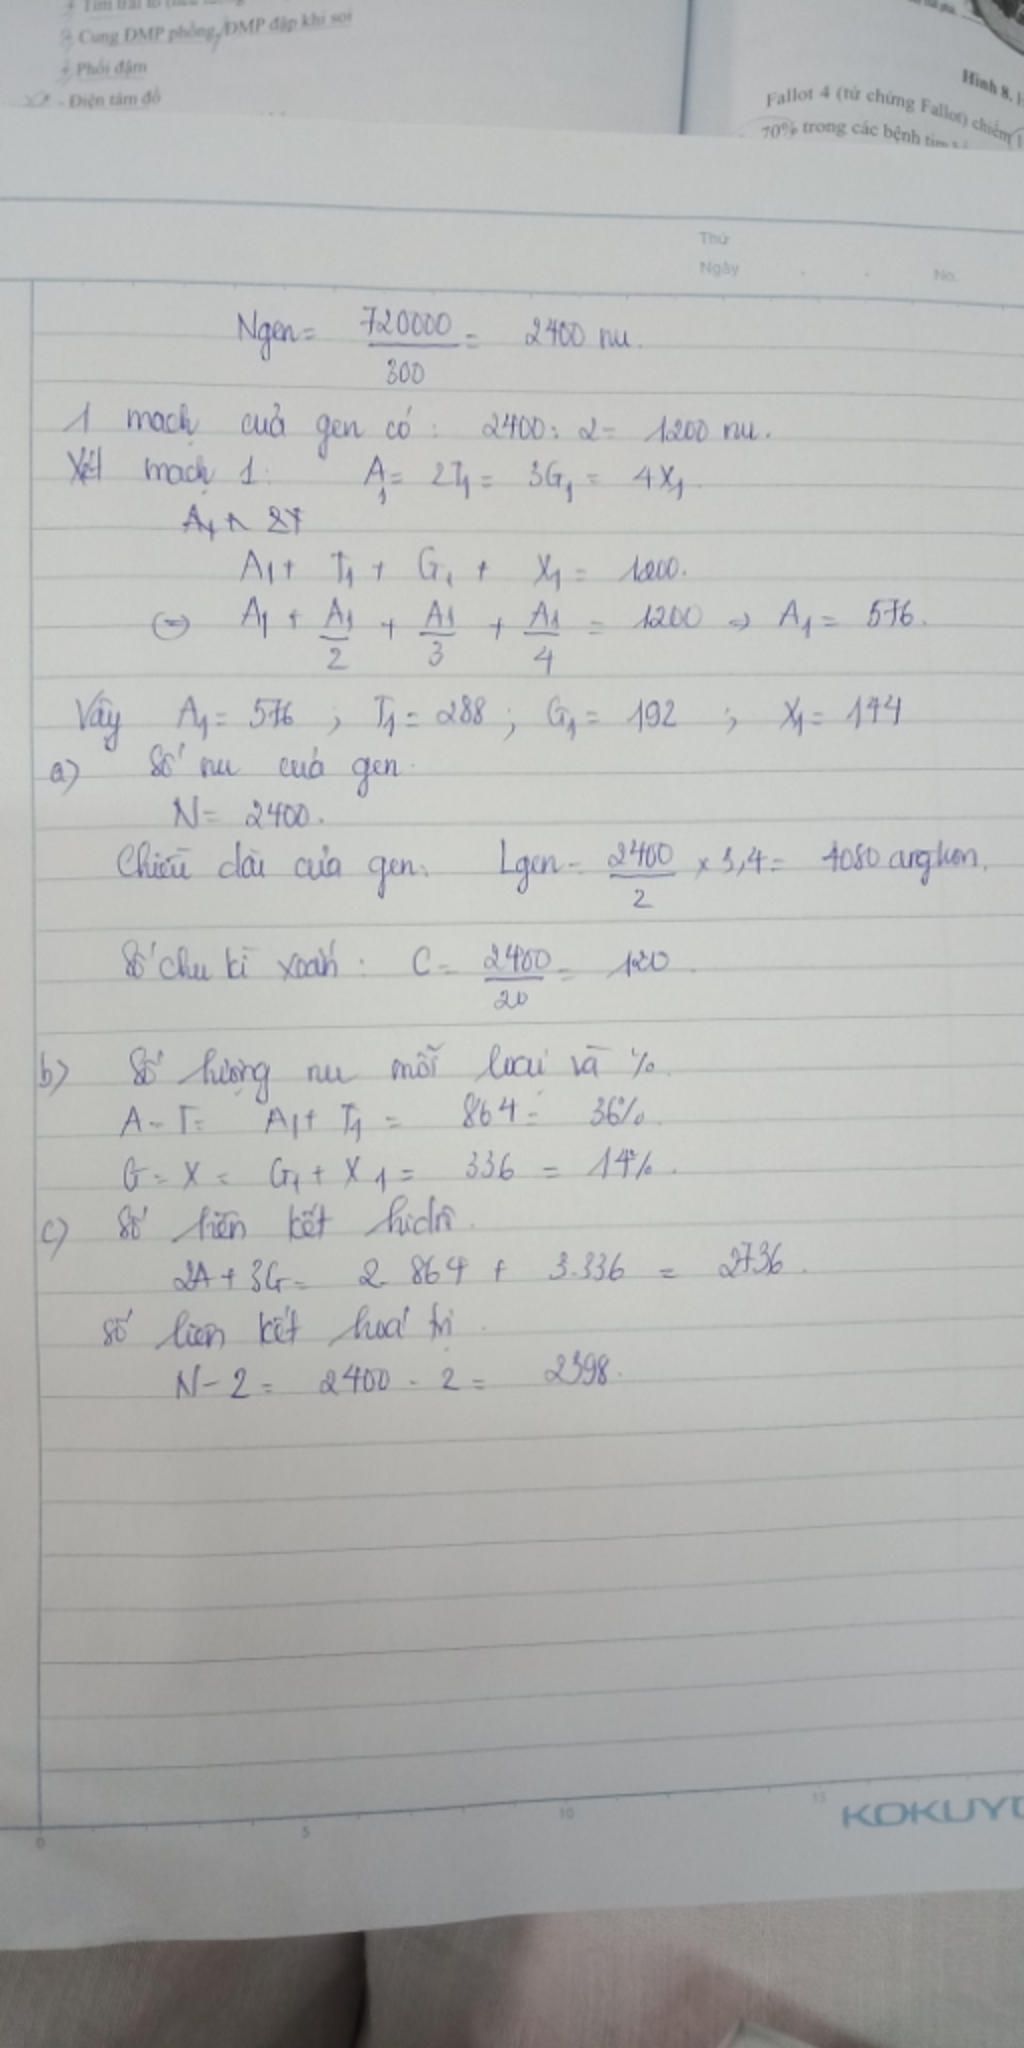 Cung ĐMP phồng, ĐMP đập khi soi
+ Phổi đậm
- Điện tâm đồ
Hình 8.
Fallot 4 (tứ chứng Fallot) chiếm
70% trong các bệnh tim
Thứ
Ngày
No.
Ngen = 720000/300 = 2400 nu.
1 mạch của gen có : 2400 : 2 = 1200 nu.
Xét mạch 1: A1 = 2T1 = 3G1 = 4X1.
A1 + T1 + G1 + X1 = 1200.
⇔ A1 + A1/2 + A1/3 + A1/4 = 1200 → A1 = 576.
Vậy A1 = 576 ; T1 = 288 ; G1 = 192 ; X1 = 144
a) Số nu của gen.
N = 2400.
Chiều dài của gen. Lgen = 2400/2 × 3,4 = 4080
Số chu kì xoắn : C = 2400/20 = 120
b) Số lượng nu mỗi loại và %.
A = T = A1 + T1 = 864 = 36%.
G = X = G1 + X1 = 336 = 14%.
c) Số liên kết hiđrô.
2A + 3G = 2. 864 + 3.336 = 2736.
Số liên kết hoá trị.
N - 2 = 2400 - 2 = 2398.
0 5 10 15
KOKUYO